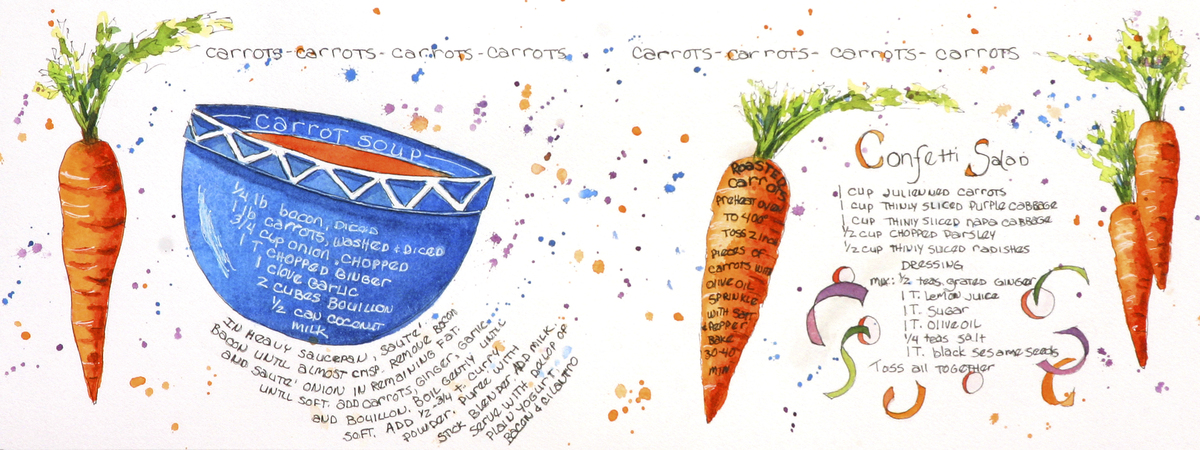 carrots-carrots-carrots-carrots
carrot soup
1/4 lb bacon, diced
1 lb carrots, washed + diced
3/4 cup onion, chopped
1 T chopped ginger
1 clove garlic
2 cubes bouillon
1/2 can coconut
milk
In heavy saucepan, sauté
bacon until almost crisp. Remove bacon
and sauté onion in remaining fat.
until soft. Add carrots, ginger, garlic
and bouillon. Boil gently until
soft. Add 1/2-3/4 t. curry
powder. Puree with
stick blender. Add milk.
Serve with dollop of
plain yogurt,
bacon & cilantro
carrots-carrots-carrots-carrots
Roasted
carrots
Preheat oven
to 400°
Toss 2 inch
pieces of
carrots with
olive oil
sprinkle
with salt
+ pepper
Bake
30-40
min
Confetti Salad
1 cup julienned carrots
1 cup thinly sliced purple cabbage
1 cup thinly sliced napa cabbage
1/2 cup chopped parsley
1/2 cup thinly sliced radishes
Dressing
mix: 1/2 teas. grated ginger
1 T. lemon juice
1 T. sugar
1 T. olive oil
1/4 teas salt
1 T. black sesame seeds
Toss all together